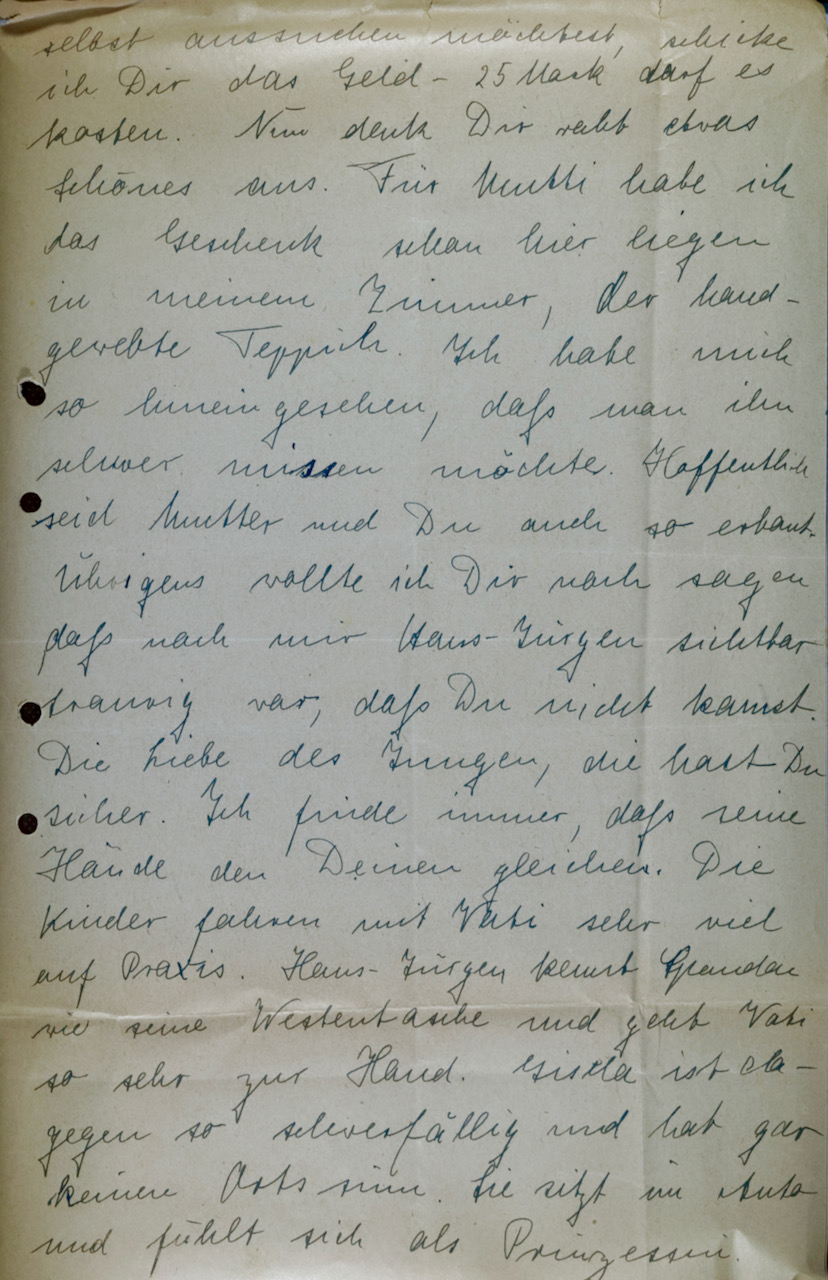 selbst aussuchen möchtest, schicke
ich Dir das Geld - 25 Mark darf es
kosten. Nun denk Dir recht etwas
schönes aus. Für Mutti habe ich
das Geschenk schon hier liegen
in meinem Zimmer, der hand-
gewebte Teppich. Ich habe mich
so hineingesehen, daß man ihn
schwer missen möchte. Hoffentlich
seid Mutter und Du auch so erbaut.
Übrigens wollte ich Dir noch sagen
daß nach mir Hans-Jürgen sichtbar
traurig war, daß Du nicht kamst.
Die Liebe des Jungen, die hast Du
sicher. Ich finde immer, daß seine
Hände den Deinen gleichen. Die
Kinder fahren mit Vati sehr viel
auf Praxis. Hans-Jürgen kennt Spandau
wie seine Westentasche und geht Vati
so sehr zur Hand. Gisela ist da-
gegen so schwerfällig und hat gar
keinen Ortssinn. Sie sitzt im Auto
und fühlt sich als Prinzessin.